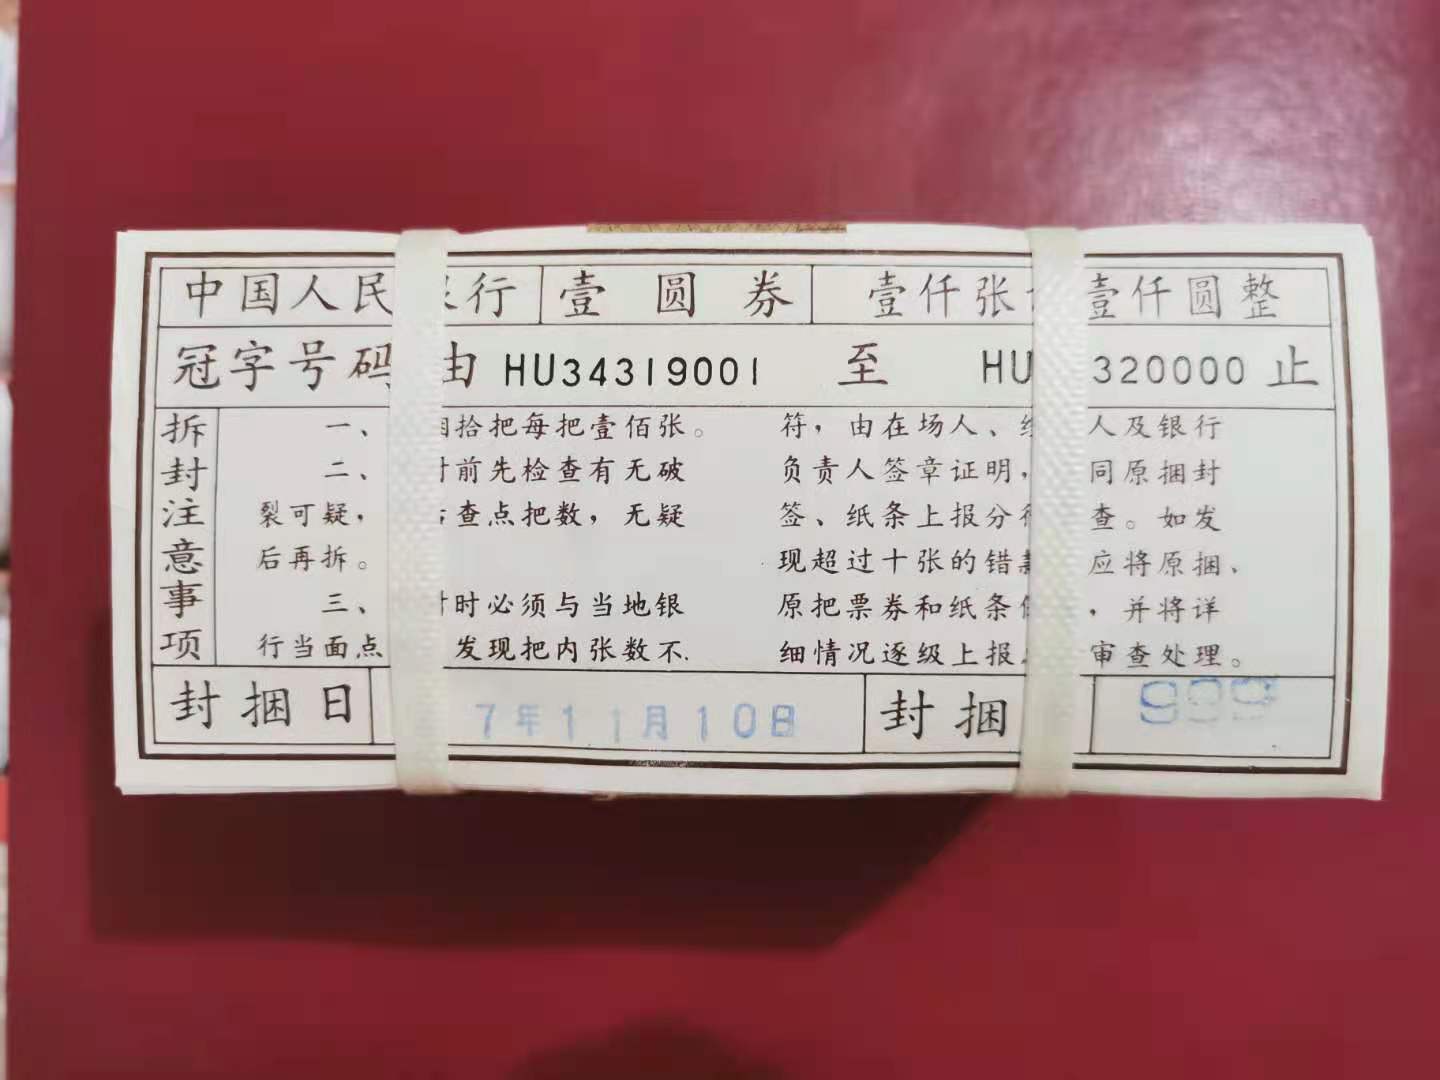 中国人民 行 壹圆券 壹仟张 壹仟圆整
冠字号码 由 HU34319001 至 HU 320000 止
拆封注意事项
一、 拾把每把壹佰张。
二、 前先检查有无破
裂可疑, 查点把数,无疑
后再拆。
三、 时必须与当地银
行当面点 发现把内张数不
符,由在场人、 人及银行
负责人签章证明, 同原捆封
签、纸条上报分 查。如发
现超过十张的错 应将原捆、
原把票券和纸条 ,并将详
细情况逐级上报 审查处理。
封捆日 7年11月10日 封捆 999